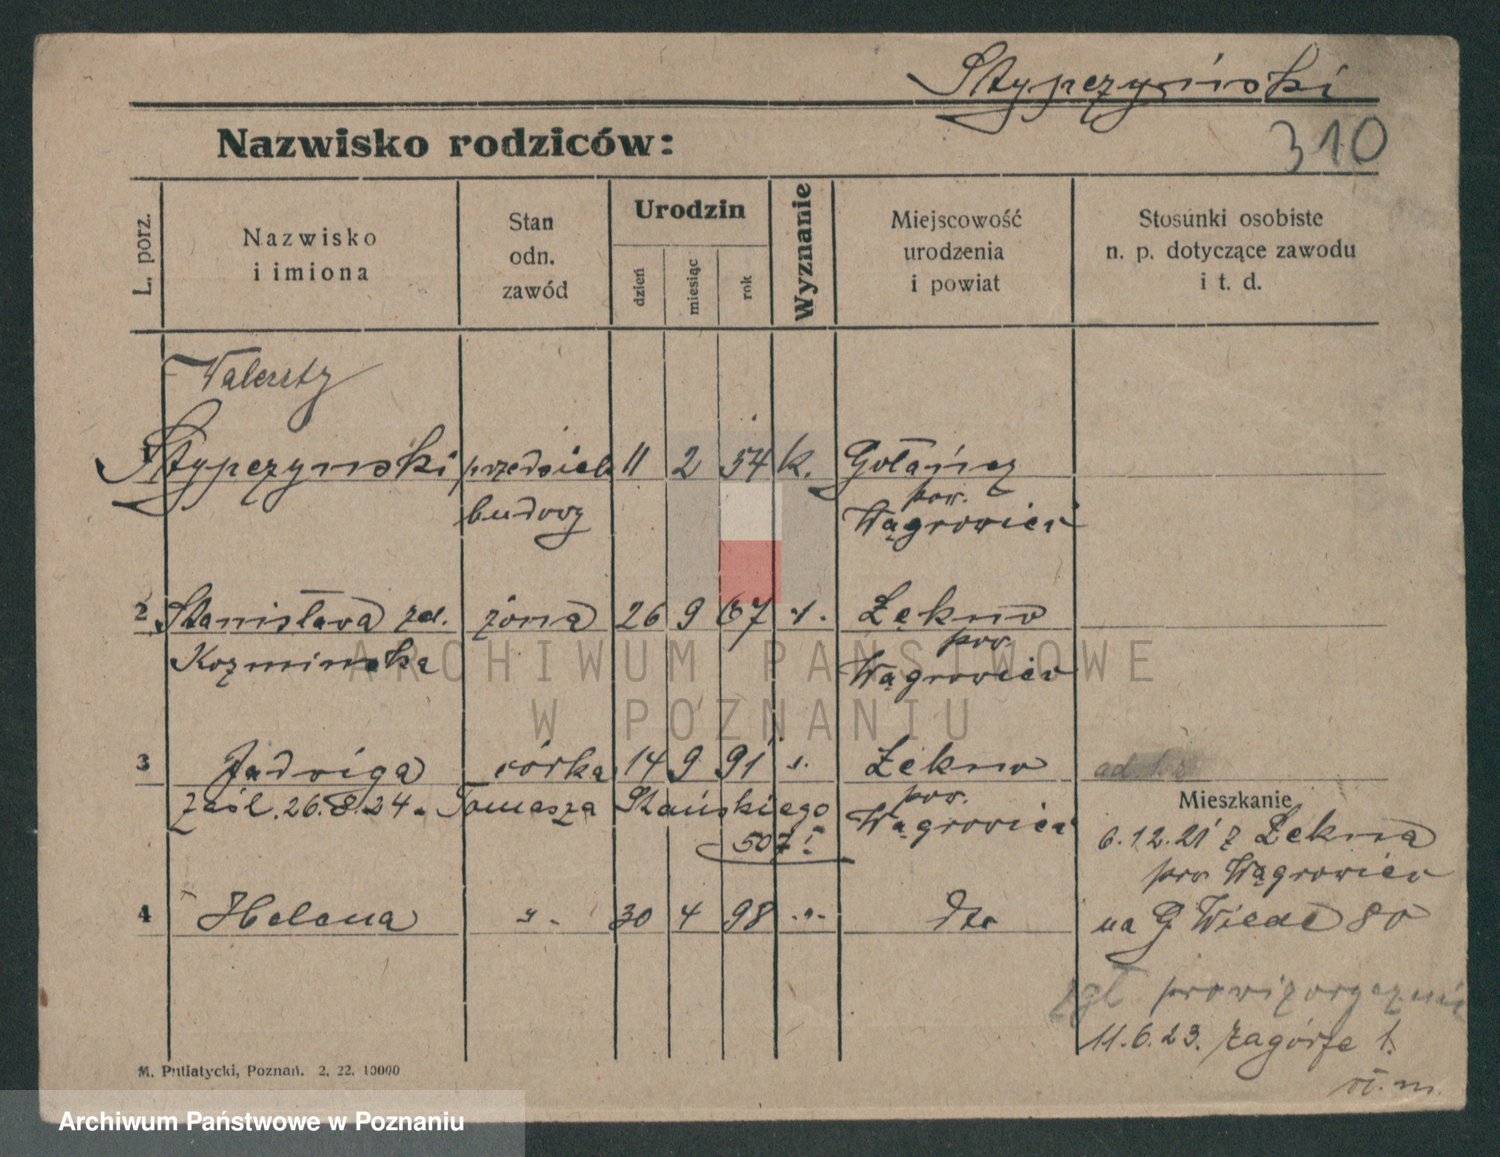 Stypczyński
Nazwisko rodziców:
310
L. porz.
Nazwisko
i imiona
Stan
odn.
zawód
Urodzin
dzień
miesiąc
rok
Wyznanie
Miejscowość
urodzenia
i powiat
Stosunki osobiste
n. p. dotyczące zawodu
i t. d.
Walenty
1 Stypczynski przedsieb 11 2 54 k. Gołańcz
budowy
pow.
Wągrowiec
2 Stanisława zd. żona 26 9 67 Łekno
Kozminska
pow.
Wągrowiec
3 Jadwiga córka 14 9 91 Łekno
zaśl. 26.8.24. Tomasza Stańskiego
507
pow.
Wągrowiec
Mieszkanie
6.12.21 z Łekna
pow Wągrowiec
4 Helena 30 4 98 dto
na G. Wilde 80
zgł prowizorycznie
11.6.23. Zagórze 1.
M. Putiatycki, Poznań. 2. 22. 10000
ARCHIWUM PAŃSTWOWE
W POZNANIU
Archiwum Państwowe w Poznaniu